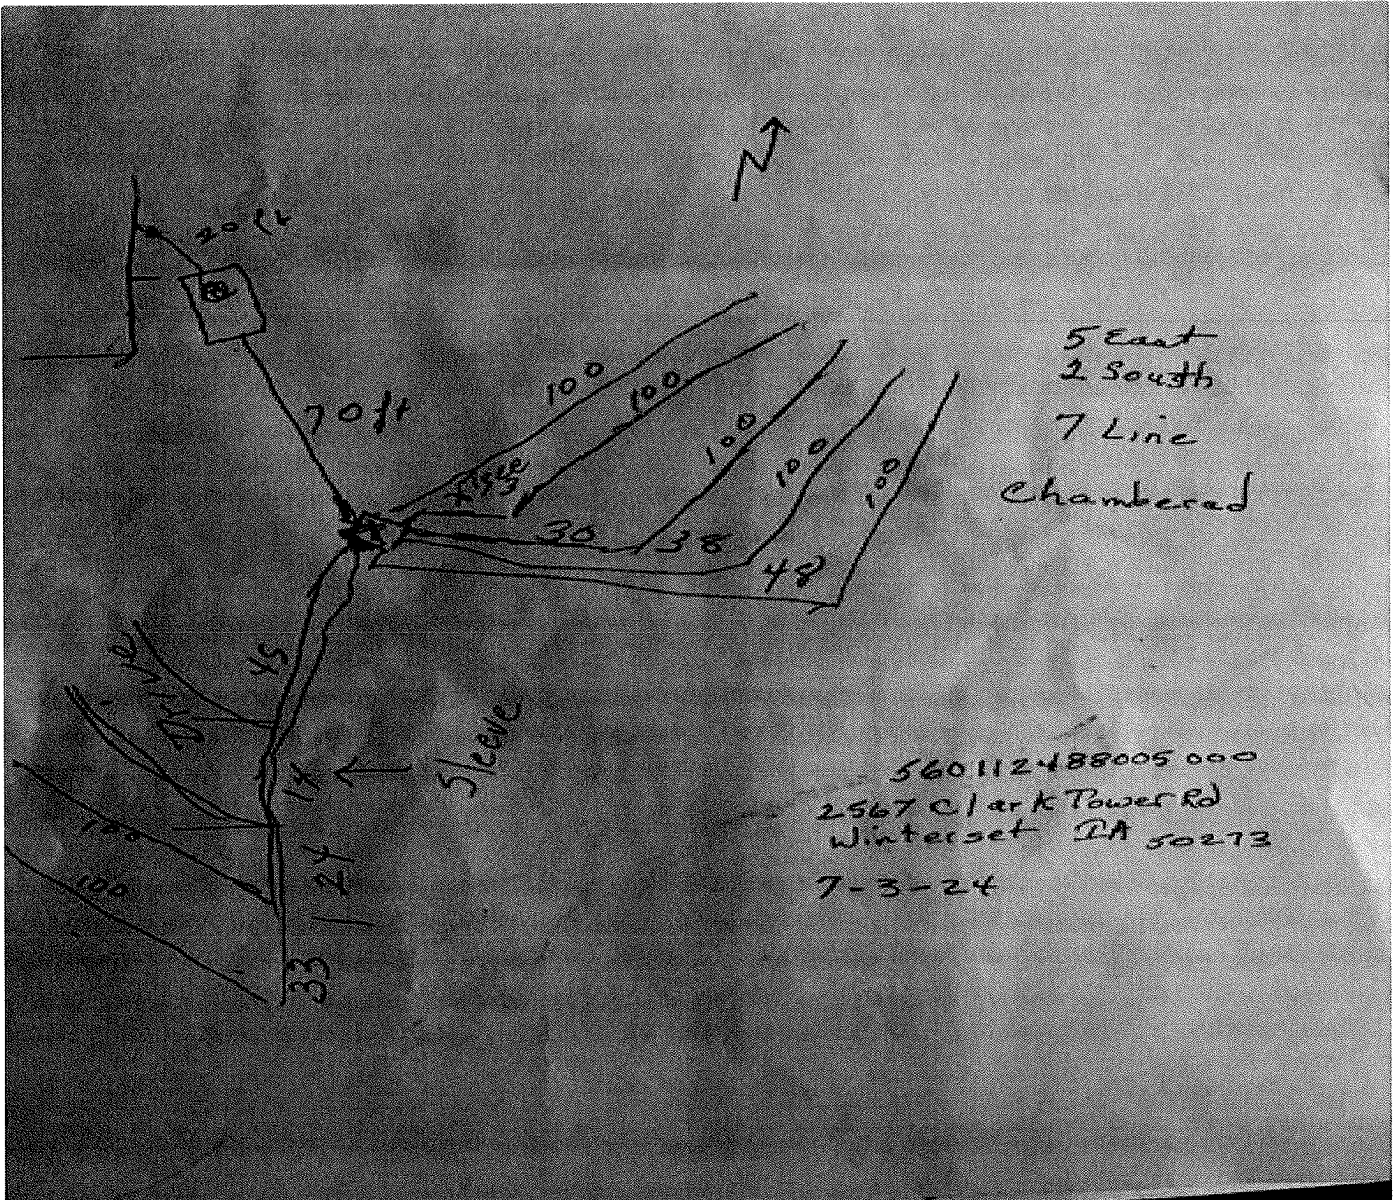 N
20 ft
70 ft
100
100
100
100
100
30
38
48
5 East
2 South
7 Line
Chambered
45
Drive
Sleeve
24
33
100
100
560112488005000
2567 Clark Tower Rd
Winterset IA 50273
7-3-24